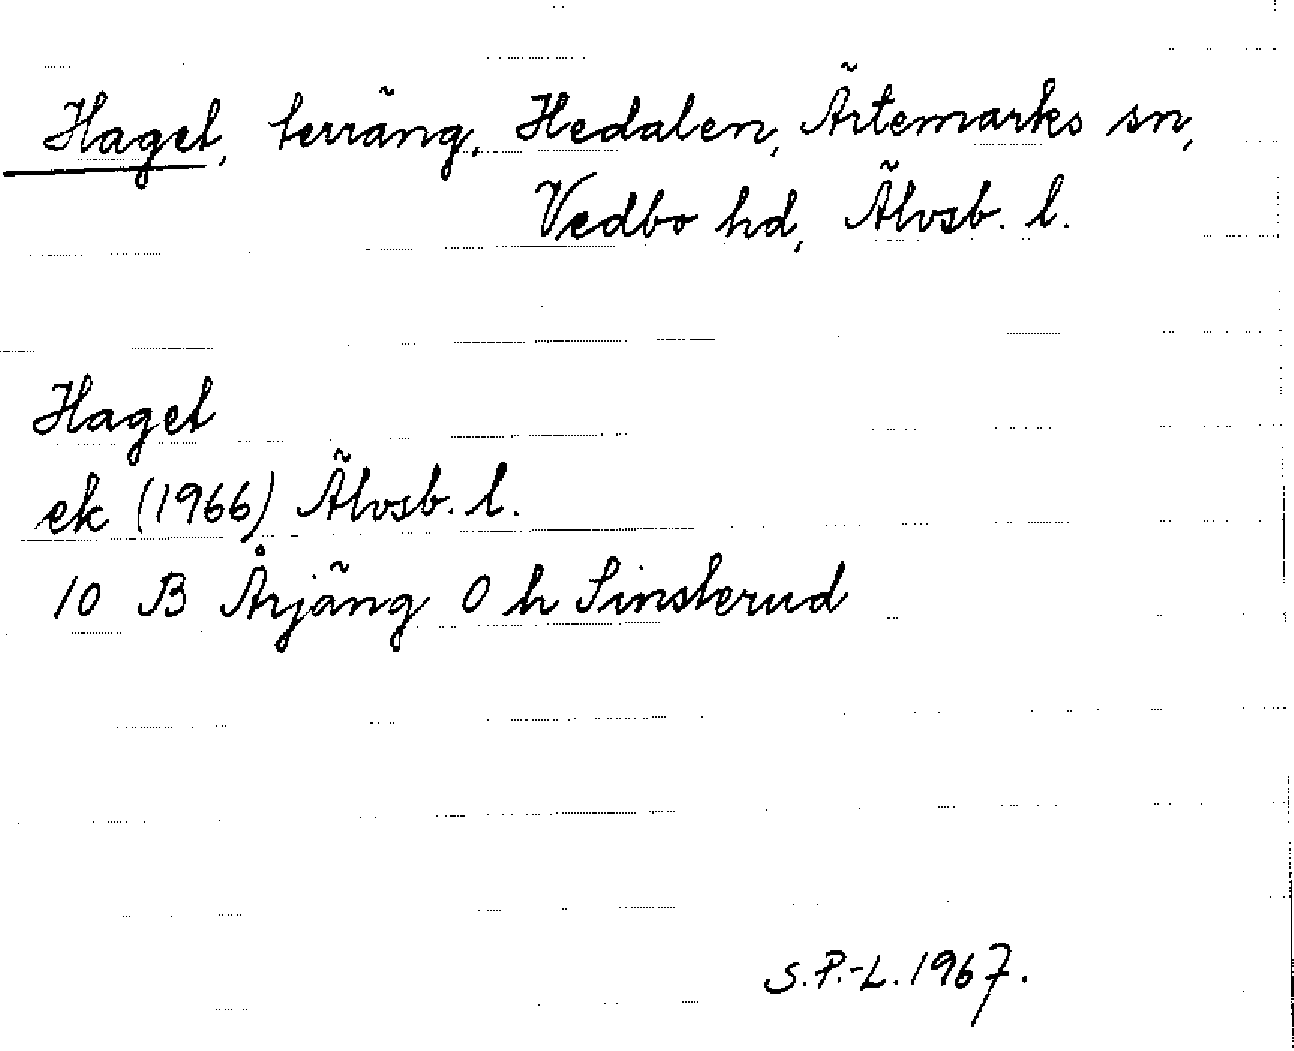 Haget, terräng, Hedalen, Ärtemarks sn,
Vedbo hd, Älvsb. l.
Haget
ek (1966) Älvsb. l.
10 B Årjäng 0 h Sinsterud
S.P.-L. 1967.